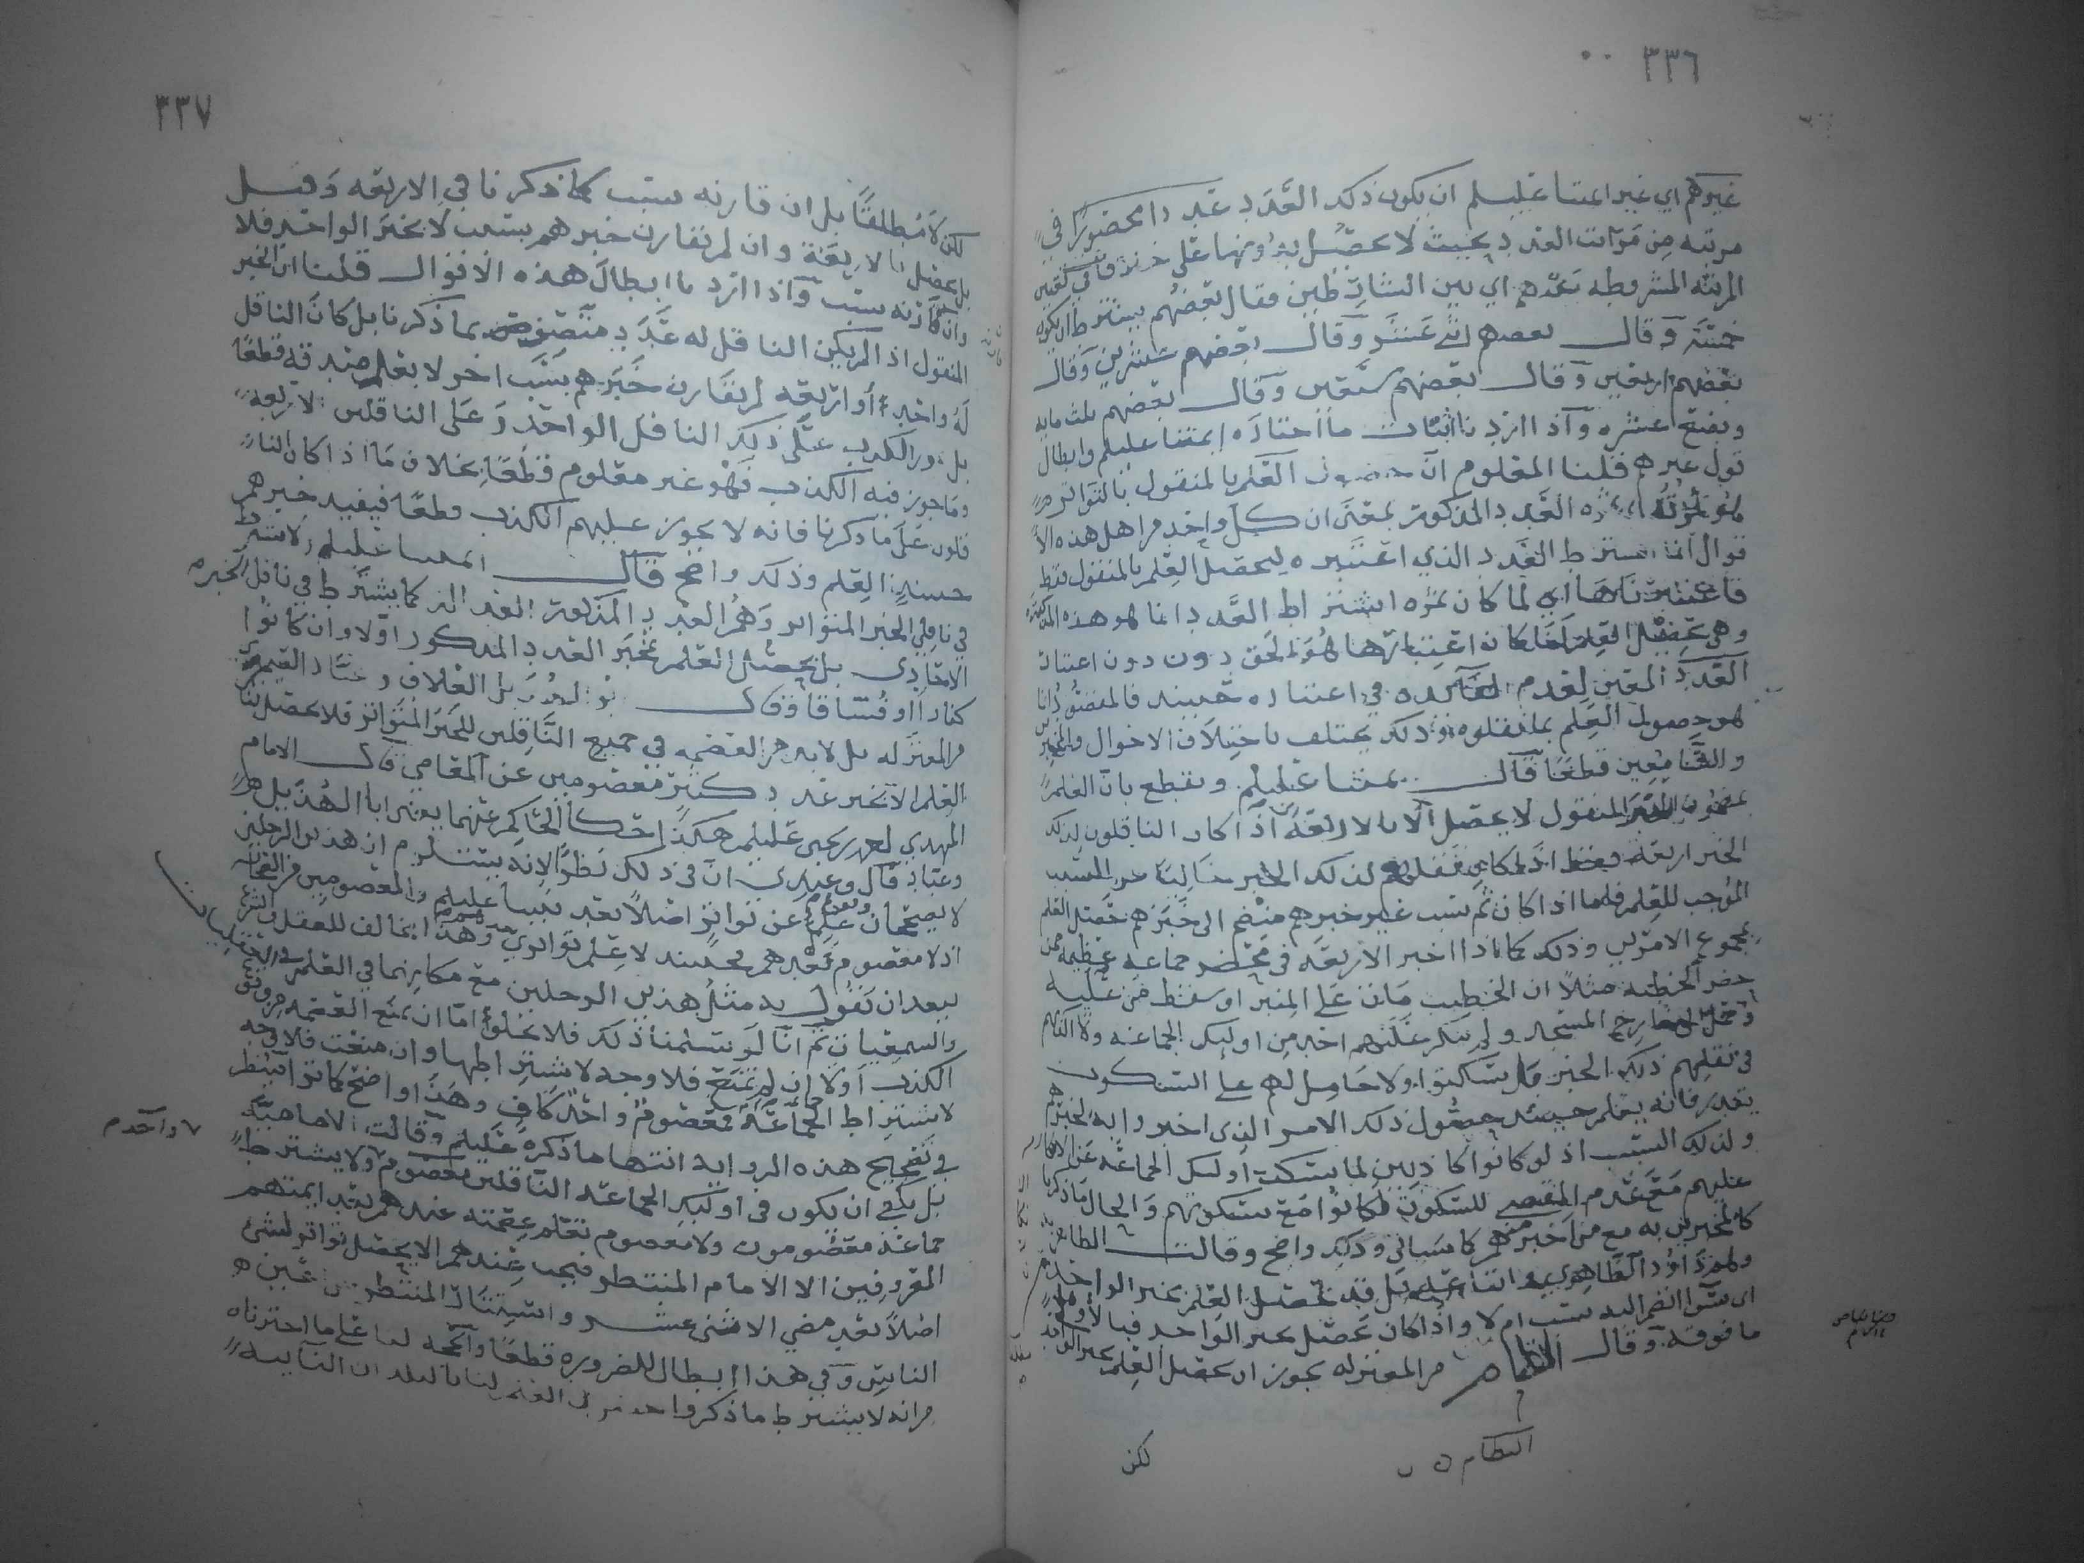 ٣٣٦
غيرهم اي غير ائمتنا عليلم ان يكون ذلك العدد عددا محصورا في
مرتبه من مراتب العدد بحيث لا يحصل بدونها على خلاف في تعيين
المرتبه المشروطه بينهم اي بين الشارطين فقال بعضهم يشترط ان يكون
خمسة وقال بعضهم اثنى عشر وقال بعضهم عشرين وقال
بعضهم اربعين وقال بعضهم سبعين وقال بعضهم ثلث مايه
وبضع عشره واذا اردنا اثبات ما اختاره ائمتنا عليلم وابطال
قول غيرهم قلنا المعلوم ان حصول العلم بالمنقول بالتواتر
هو ثمرة العدد المذكور بمعنى ان كل واحد من اهل هذه الا
قوال انما اشترط العدد الذي اعتبره ليحصل العلم بالمنقول فقط
فاعتبرناها اي لما كان ثمره اشتراط العدد انما هو هذه
وهي تحصيل العلم كان اعتبارها هو الحق دون اعتبار
العدد المعين لعدم الفائده في اعتباره حينئذ فالمقصود انما
هو حصول العلم بما نقلوه وذلك يختلف باختلاف الاحوال
والسامعين قطعا قال ائمتنا عليلم ونقطع بان العلم
بمضمون الخبر المنقول لا يحصل الا بالاربعة اذا كان الناقلون لذلك
الخبر اربعة فقط اذا كان نقلهم لذلك الخبر خاليا عن السبب
الموجب للعلم فاما اذا كان ثم سبب غير خبرهم منضم الى خبرهم حصل العلم
بمجموع الامرين وذلك كما اذا اخبر الاربعه في محضر جماعه عظيمه ممن
حضر الخطبه مثلا ان الخطيب مات على المنبر او سقط من عليه
خارج المسجد ولم ينكر عليهم احد من اوليك الجماعه
في نقلهم ذلك الخبر بل سكتوا ولا حامل لهم على السكوت
يقدر فانه يعلم حينئذ حصول ذلك الامر الذي اخبروا به لخبرهم
ولذلك السبب اذ لو كانوا كاذبين لما سكت اوليك الجماعه عن الانكار
عليهم مع عدم المقتضي للسكوت فكانوا مع سكوتهم والحال ما ذكرنا
كالمخبرين به مع من اخبر منهم كما سياتي وذلك واضح وقالت الظاهريه
وهم داود الظاهري واتباعه بل قد يحصل العلم بخبر الواحد
اي سوا انضم اليه سبب ام لا واذا كان يحصل بخبر الواحد فبالاولى
ما فوقه وقال النظام من المعتزله يجوز ان يحصل العلم بخبر الواحد
النظام ن
لكن
٣٣٧
لكن لا مطلقا بل ان قارنه سبب كما ذكرنا في الاربعه وقيل
بل يحصل بالاربعة وان لم تقارن خبرهم بسبب لا بخبر الواحد فلا
وان قارنه سبب واذا اردنا ابطال هذه الاقوال قلنا ان الخبر
المنقول اذا لم يكن الناقل له عدد متصف بما ذكرنا بل كان الناقل
له واحد او اربعه لم يقارن خبرهم بسبب اخر لا يعلم صدقه قطعا
بل يجوز الكذب على ذلك الناقل الواحد وعلى الناقلين الاربعه
وما جوز فيه الكذب فهو غير معلوم قطعا بخلاف ما اذا كان النا
قلون على ما ذكرنا فانه لا يجوز عليهم الكذب قطعا فيفيد خبرهم
حينئذ العلم وذلك واضح قال ائمتنا عليلم ولا يشترط
في ناقلي الخبر المتواتر وهم العدد المذكور العداله كما يشترط في ناقل الخبر
الاحادي بل يحصل العلم بخبر العدد المذكور اولا وان كانوا
كفارا او فساقا وقال ابو الهذيل العلاف وعباد الضيمري
من المعتزله بل لا بد من العصمه في جميع الناقلين للخبر المتواتر فلا يحصل لنا
العلم الا بخبر عدد كثير معصومين عن المعاصي قال الامام
المهدي احمد بن يحيى عليلم هكذا حكا الحاكم عنهما يعني ابا الهذيل
وعباد قال وعندي ان في ذلك نظرا لانه يستلزم ان هذين الرجلين
لا يصححان علم عن تواتر اصلا بعد نبينا عليلم والمعصومين من الصحابه
اذ لا معصوم بعدهم فحينئذ لا علم تواتري وهذا يخالف للعقل والشرع
يبعد ان يقول به مثل هذين الرجلين مع مكانهما في العلم في العقليات
والسمعيات ثم انا لو سلمنا ذلك فلا يخلوا اما ان تمنع العصمه من وقوع
الكذب اولا ان لم تمنع فلا وجه لاشتراطها وان منعت فلا وجه
لاشتراط الجماعة فمعصوم واحد كاف وهذا واضح كما ترا فينظر
في تصحيح هذه الروايه انتها ما ذكره عليلم وقالت الاماميه
بل يكفي ان يكون في اوليك الجماعه الناقلين معصوم ولا يشترط
٧ واحد م
جماعة معصومون ولا معصوم نعلم عصمته عندهم بعد ايمتهم
المعروفين الا الامام المنتظر فيجب عندهم الا يحصل تواتر لشئ
اصلا بعد مضي الاثنى عشر واستتار المنتظر من اعين
الناس وفي هذا ابطال للضروره قطعا والحجه لنا على ما اخترناه
من انه لا يشترط ما ذكروا حصول العلم لنا بالبلدان النائيه